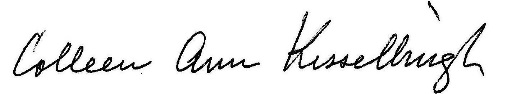 Colleen Ann Kessellbrigh